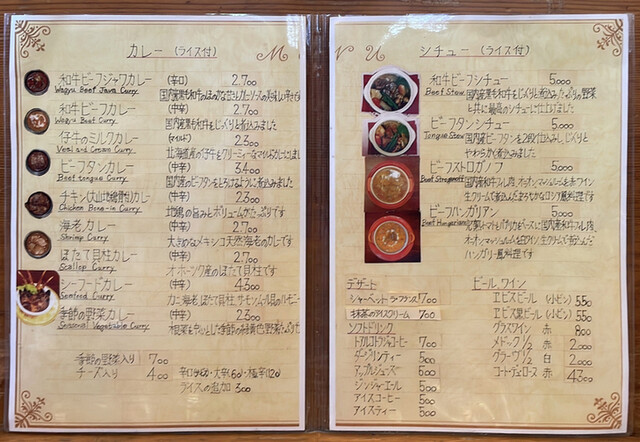 カレー (ライス付)
和牛ビーフジャワカレー (辛口) 2.700
Wagyu Beef Java Curry
和牛ビーフカレー (中辛) 2.700
Wagyu Beef Curry
国内産黒毛和牛をじっくりと煮込みました
仔牛のミルクカレー (マイルド) 2.300
Cream Curry
ビーフタンカレー (中辛) 3.400
Beef tongue Curry
国内産のビーフタンをとろけるように煮込みました
チキン(大山地鶏骨付)カレー (中辛) 2.300
Chicken Bone-in Curry
地鶏の旨みとボリュームがたっぷりです
海老カレー (中辛) 2.700
Shrimp Curry
大きめなメキシコ天然海老のカレーです
ほたて貝柱カレー (中辛) 2.700
Scallop Curry
オホーツク産のほたて貝柱です
シーフードカレー (中辛) 4.300
Seafood Curry
カニ、海老、ほたて貝柱、サーモン、
季節の野菜カレー (中辛) 2.300
Seasonal Vegetable Curry
季節の野菜入り 700
チーズ入り 400
辛口 大辛 極辛
ライスの追加 300
M
N U
シチュー (ライス付)
和牛ビーフシチュー 5.000
Beef Stew
国内産黒毛和牛をじっくりと煮込み
と共に最高のシチューに仕上げました
ビーフタンシチュー 5.000
Tongue Stew
国内産ビーフタンを じっくりと
やわらかく煮込みました
ビーフストロガノフ 5.000
Beef Stroganoff
国内産和牛フィレ肉、オニオン、マッシュルームを赤ワイン
生クリームで煮込んだまろやかなロシア風料理です
ビーフハンガリアン 5.000
Beef Hungarian
トマトとパプリカをベースに国内産和牛フィレ肉、
オニオン、マッシュルームを 生クリームで煮込んだ
ハンガリー風料理です
デザート
シャーベット ラ・フランス 700
抹茶のアイスクリーム 700
ソフトドリンク
トアルコトラジャコーヒー 700
ダージリンティー 500
アップルジュース 500
ジンジャーエール 500
アイスコーヒー 500
アイスティー 500
ビール、ワイン
ヱビスビール (小ビン) 550
ヱビス黒ビール (小ビン) 550
グラスワイン 赤 800
メドック 1/2 赤 2.000
グラーヴ 1/2 白 2.000
コート・デュ・ローヌ 赤 4.300